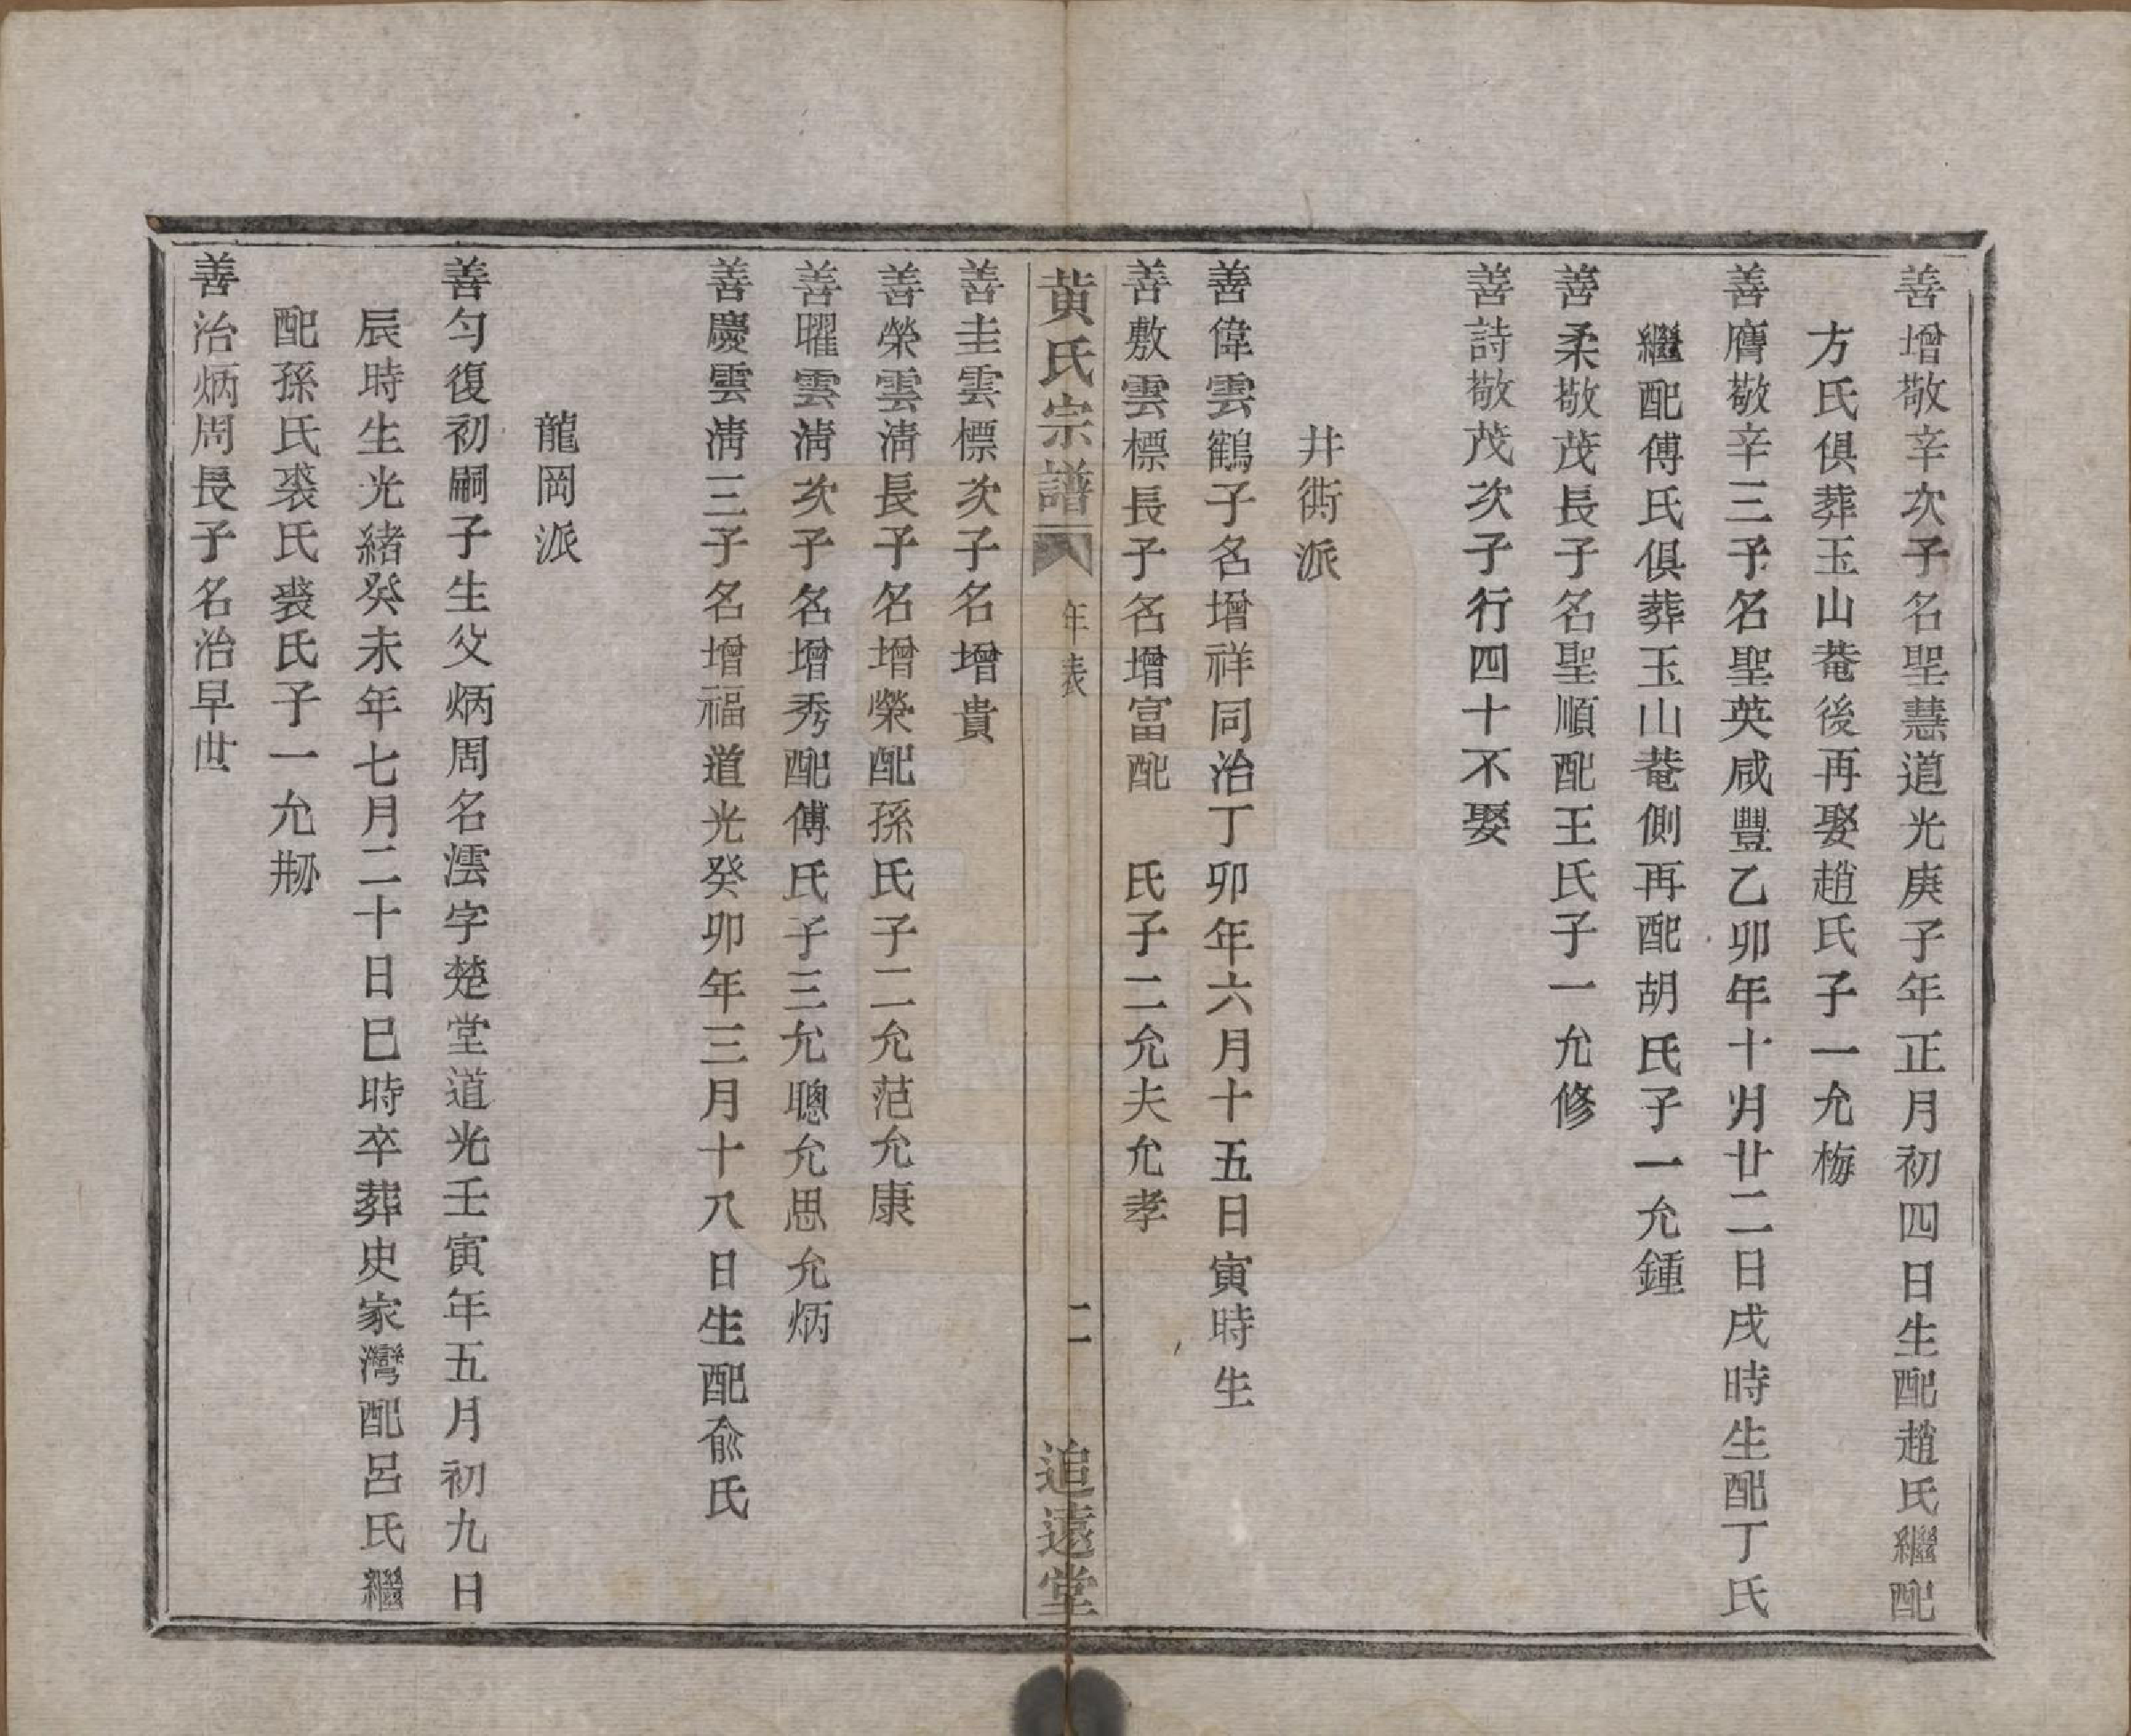 善增敬辛次子名聖慧道光庚子年正月初四日生配趙氏繼配
方氏俱葬玉山菴後再娶趙氏子一允梅
善膺敬辛三子名聖英咸豐乙卯年十月廿二日戌時生配丁氏
繼配傅氏俱葬玉山菴側再配胡氏子一允鍾
善柔敬茂長子名聖順配王氏子一允修
善詩敬茂次子行四十不娶
井衖派
善偉雲鶴子名增祥同治丁卯年六月十五日寅時生
善敷雲標長子名增富配　氏子二允夫允孝
黄氏宗譜　年表　二　追遠堂
善圭雲標次子名增貴
善榮雲淸長子名增榮配孫氏子二允范允康
善曜雲淸次子名增秀配傅氏子三允聰允思允炳
善慶雲淸三子名增福道光癸卯年三月十八日生配俞氏
龍岡派
善匀復初嗣子生父炳周名澐字楚堂道光壬寅年五月初九日
辰時生光緒癸未年七月二十日巳時卒葬史家灣配呂氏繼
配孫氏裘氏裘氏子一允刱
善治炳周長子名治早世